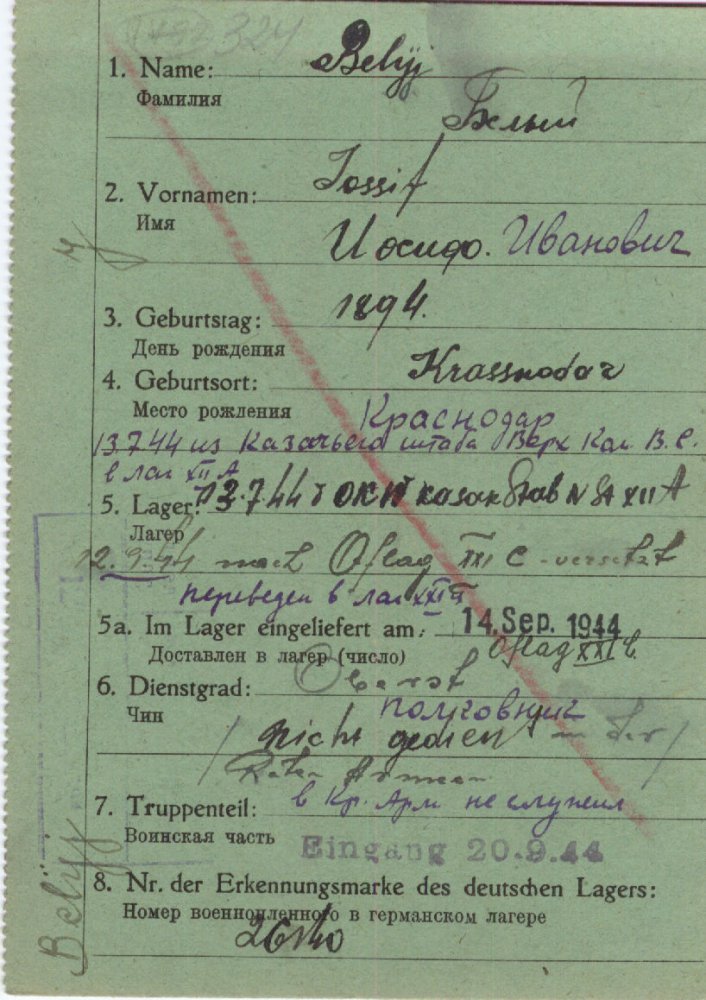 324
1. Name: Belyj
Фамилия
Белый
2. Vornamen: Iossif
Имя
Иосиф. Иванович
3. Geburtstag: 1894.
День рождения
4. Geburtsort: Krassnodar
Место рождения Краснодар
13.7.44 из Казачьего штаба Верх Ком В.С.
в лаг XII A
5. Lager: 13.7.44 v OKW Kosak Stab N St XII A
Лагер
12.9.44 nach Oflag XXI C versetzt
переведен в лаг XXI
5a. Im Lager eingeliefert am: 14. Sep. 1944
Доставлен в лагер (число) Oflag XXI C.
6. Dienstgrad: Oberst
Чин полковник
/ nicht gedient in der /
Roten Armee
7. Truppenteil: в Кр. Арм не служил
Воинская часть
Eingang 20.9.44
8. Nr. der Erkennungsmarke des deutschen Lagers:
Номер военнопленного в германском лагере
Belyj